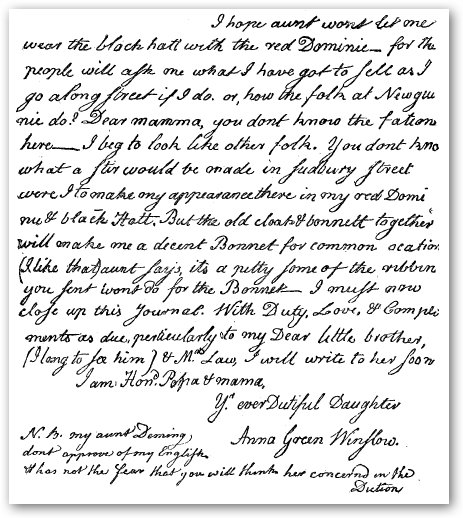 I hope aunt wont let me
wear the black hatt with the red Dominie — for the
people will ask me what I have got to sell as I
go along street if I do. or, how the folk at Newgui
nie do? Dear mamma, you dont know the fation
here — I beg to look like other folk. You dont kno
what a stir would be made in sudbury street
were I to make my appearance there in my red Domi
nie & black Hatt. But the old cloak & bonnett together
will make me a decent Bonnet for common ocation
(I like that) aunt says, its a pitty some of the ribbins
you sent wont do for the Bonnet — I must now
close up this Journal. With Duty, Love, & Compli
ments as due, perticularly to my Dear little brother,
(I long to see him) & Mrs. Law, I will write to her soon
I am Hond. Papa & mama,
Yr. ever Dutiful Daughter
Anna Green Winslow.
N.B. my aunt Deming,
dont approve of my English.
& has not the fear that you will think her concernd in the
Diction